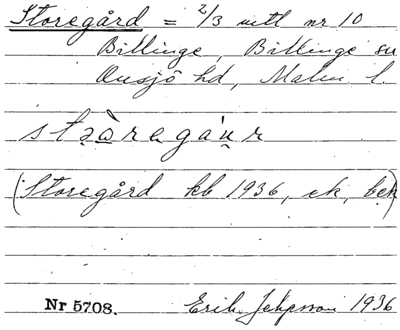 Storegård = 2/3 mtl nr 10
Billinge, Billinge sn
Onsjö hd, Malm. l.
(Storegård kb 1936, ek, bck)
Nr 5708. Erik Jeppsson 1936